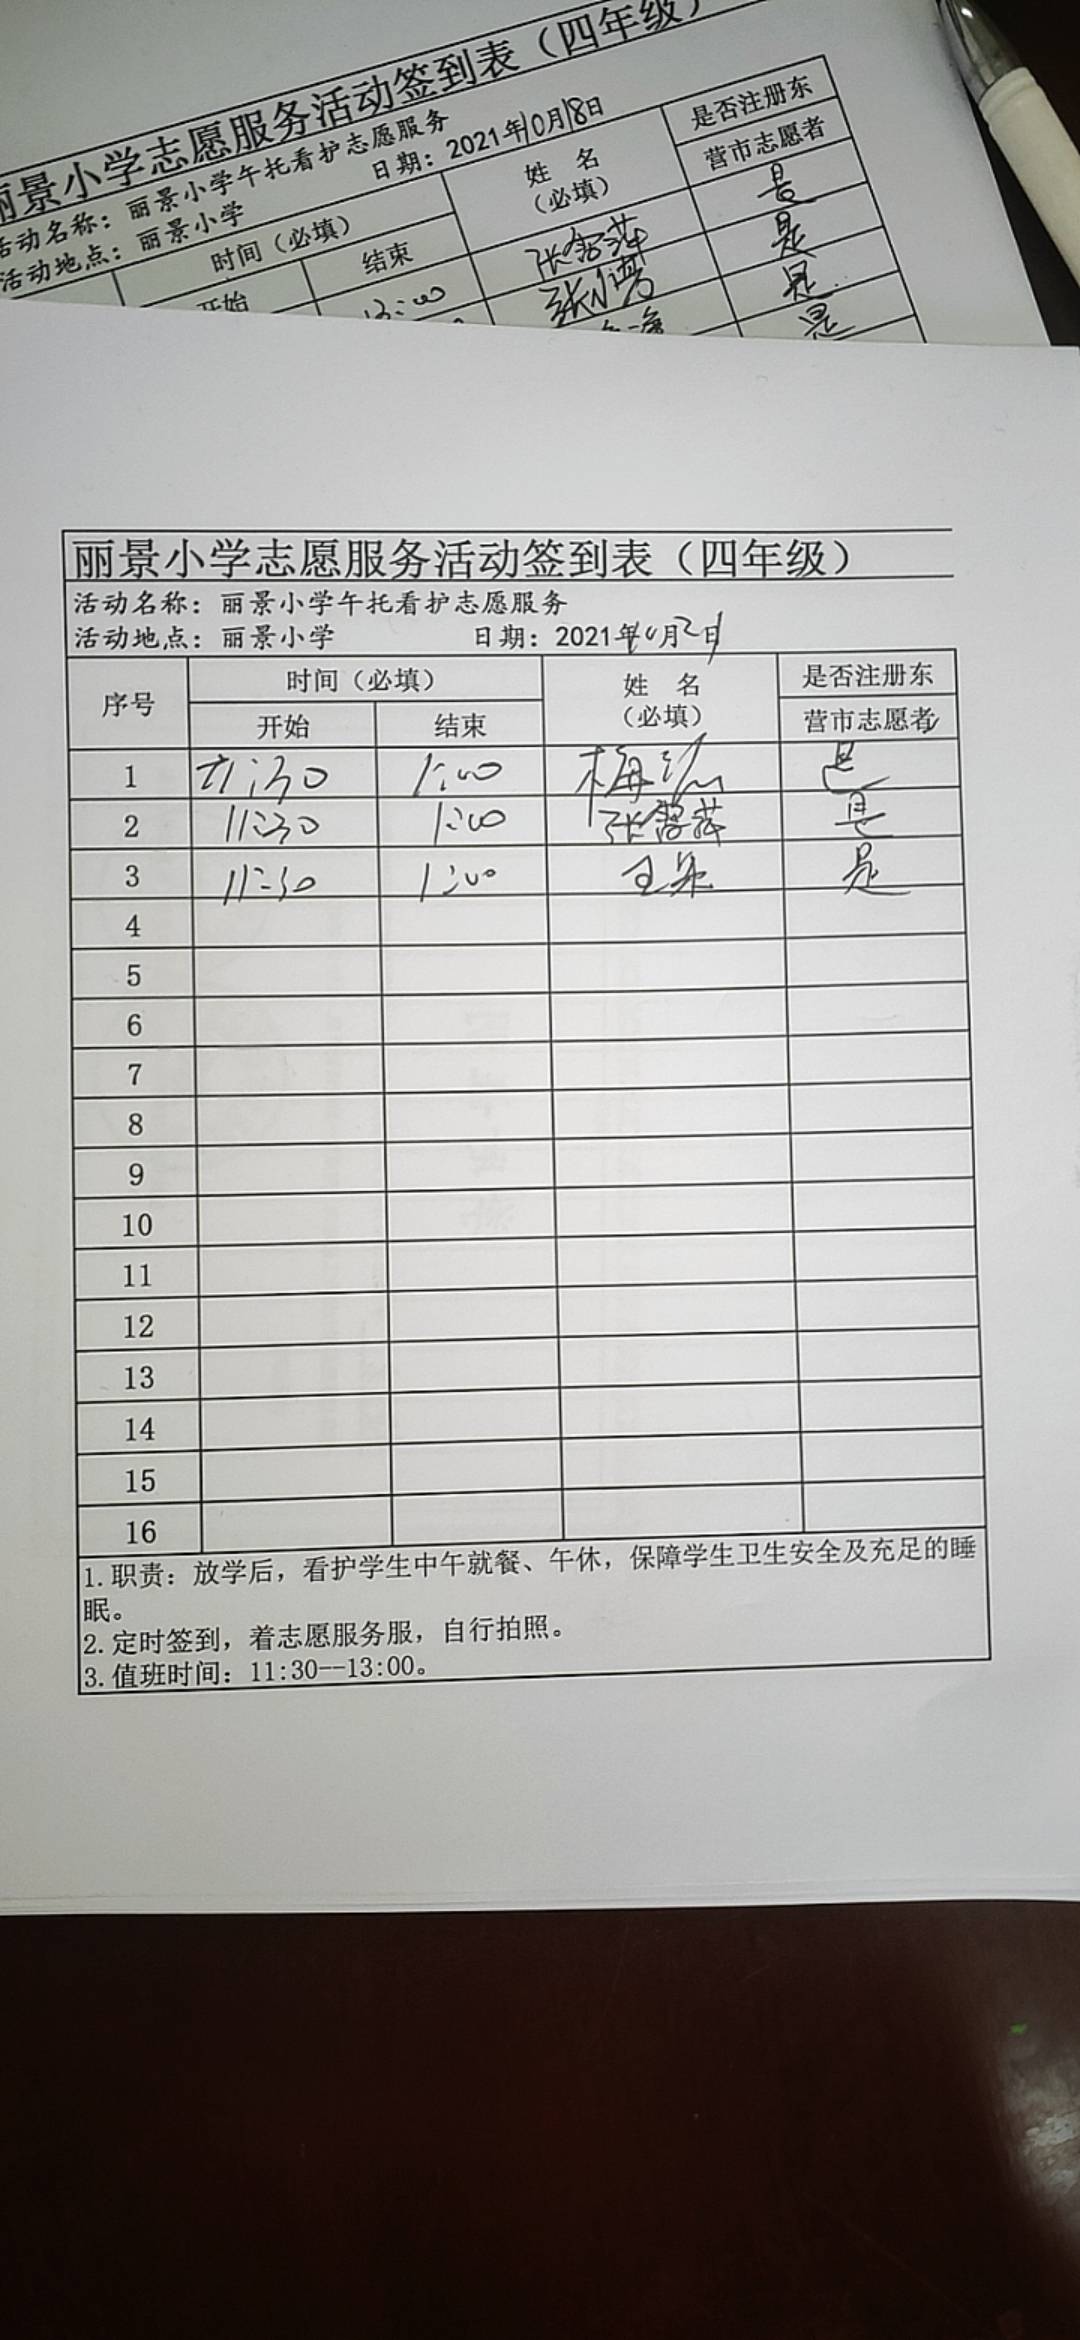 丽景小学志愿服务活动签到表（四年级）
活动名称：丽景小学午托看护志愿服务
活动地点：丽景小学 日期：2021年10月18日
时间（必填） 姓 名（必填） 是否注册东营市志愿者
开始 结束
13:00 是
是
是
是
丽景小学志愿服务活动签到表（四年级）
活动名称：丽景小学午托看护志愿服务
活动地点：丽景小学 日期：2021年
序号 时间（必填） 姓 名（必填） 是否注册东营市志愿者
开始 结束
1 11:30 1:00 是
2 11:30 1:00 是
3 11:30 1:00 是
4
5
6
7
8
9
10
11
12
13
14
15
16
1.职责：放学后，看护学生中午就餐、午休，保障学生卫生安全及充足的睡
眠。
2.定时签到，着志愿服务服，自行拍照。
3.值班时间：11:30--13:00。